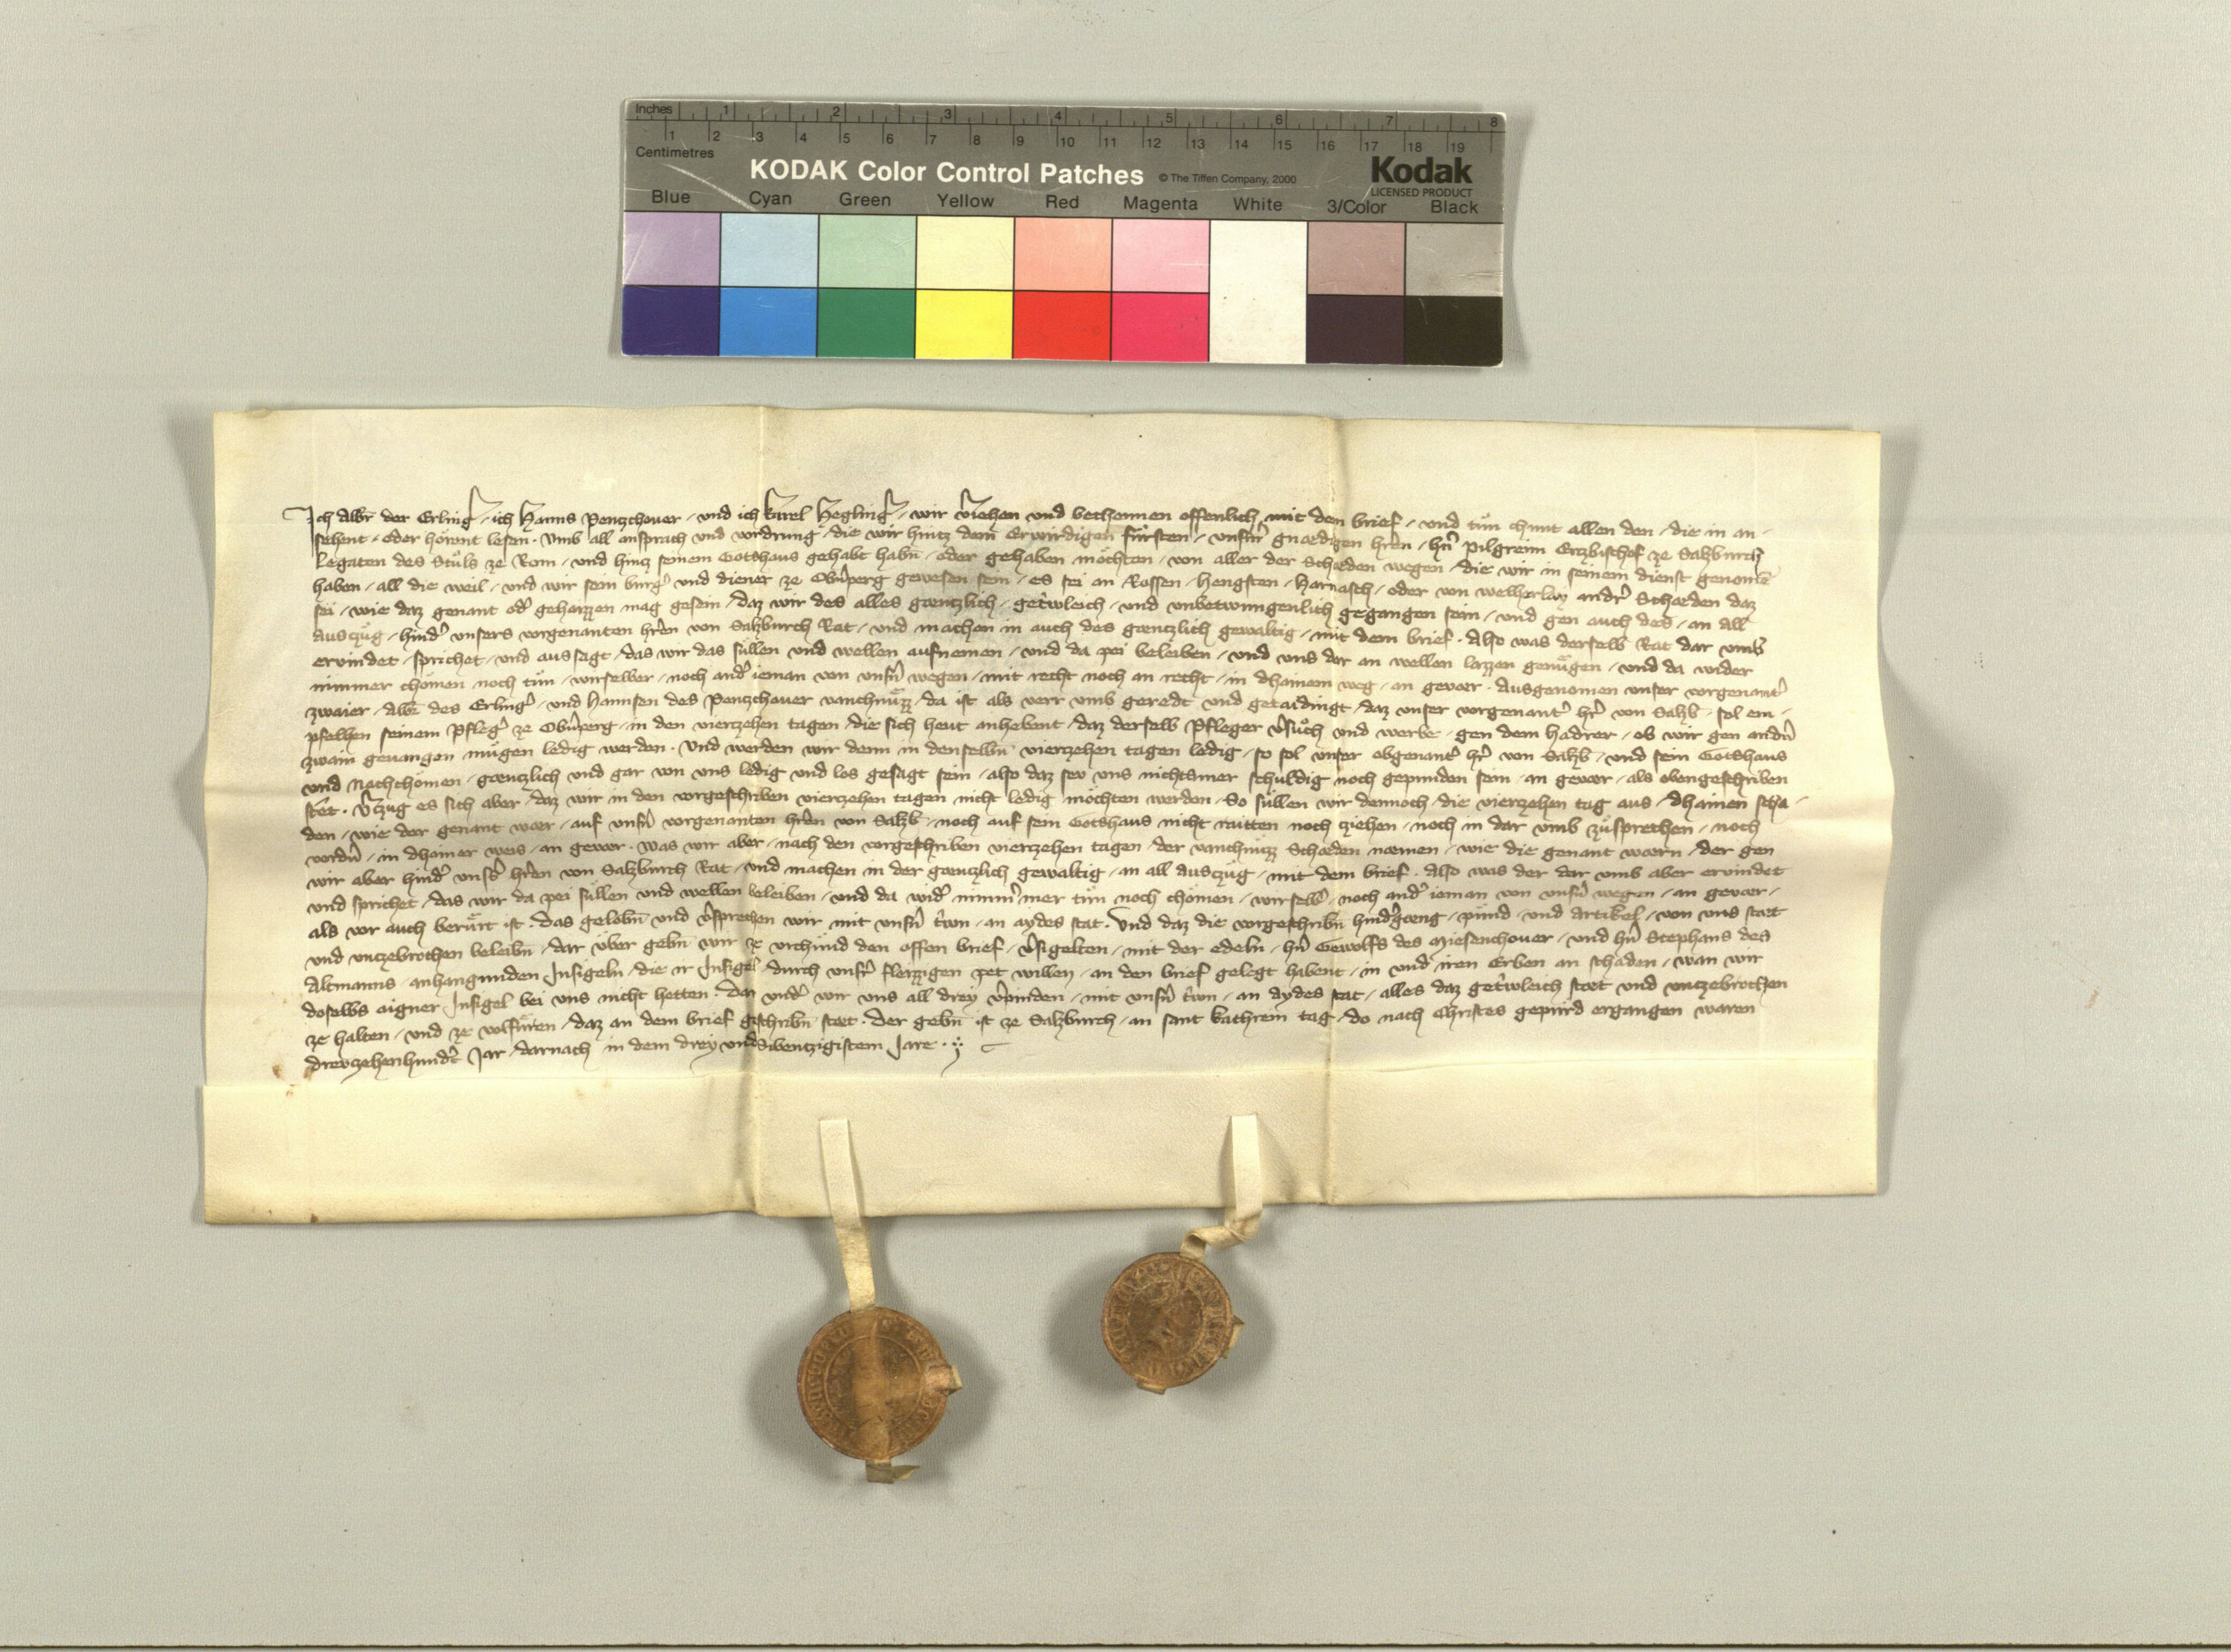 Inches 1 2 3 4 5 6 7 8
1 2 3 4 5 6 7 8 9 10 11 12 13 14 15 16 17 18 19
Centimetres
KODAK Color Control Patches © The Tiffen Company, 2000 Kodak
LICENSED PRODUCT
Blue Cyan Green Yellow Red Magenta White 3/Color Black
Ich Albr̄ der Erling͛ / ich Hanns Penzchouer / vnd ich Karel Hegling͛ / wir v͛iehen vnd bechennen offenlich mit dem brief / vnd tuͤn chunt allen den / die in an-
sehent / oder hoͤrent lesen . Vmb all ansprach vnd vordrung / die wir hintz dem Erwirdigen fuͤrsten / vnserm gnaedigen hr͛en / hn͛ Pilgreim Ertzbischof ze Salzburch
Legaten des Stuͤls ze Rom / vnd hintz seinem Gotshaus gehabt habn̄ / oder gehaben moͤchten / von aller der Schaeden wegen / die wir in seinem dienst genomē
haben / all die weil / vnd wir sein burg͛ vnd diener ze Ob͛nperg gewesen sein / es sei an Rossen / Hengsten / Harnasch / oder von welherlay andr͛ Schaeden daz
sei / wie daz genant od͛ gehaizzen mag gesein / daz wir des alles gaentzlich / getr͛wleich / vnd vnbetwungenlich gegangen sein / vnd gen auch des / an all
auszuͤg / hind͛ vnsers vorgenanten hr͛en von Salzburch Rat / vnd machen in auch des gaentzlich gewaltig / mit dem brief . Also was derselb Rat dar vmb
ervindet / sprichet / vnd aussagt / das wir das suͤllen vnd wellen aufnemen / vnd da pei beleiben / vnd vns dar an wellen lazzen genuͤgen / vnd da wider
nimmer choͤmen noch tuͤn / wirselber / noch and͛ ieman von vnsn͛ wegen / mit recht noch an recht / in dhainem weg / an gevaer . Ausgenomen vnser vorgenant͛
zwaier / Albr̄ des Erling͛ / vnd Hannsen des Penzchouer vanchnuͤzz / da ist als verr vmb geredt vnd getaidingt / daz vnser vorgenant͛ hr͛ von Salzb / sol em-
pfelhen seinem Pfleg͛ ze Ob͛nperg / in den vierzehen tagen / die sich heut anhebent / daz derselb Pfleger v͛suͤch vnd werbe / gen dem Hadrer / ob wir gen andn͛
zwain gevangen / muͤgen ledig werden . Vnd werden wir denn in denselbn̄ vierzehen tagen ledig / so sol vnser obgenant͛ hr͛ von Salzb / vnd sein Gotshaus
vnd Nachchoͤmen / gaentzlich vnd gar von vns ledig vnd los gesagt sein / also daz sev vns nichtsmer schuldig noch gepunden sein / an gevaer / als obengeschriben
stet . V͛zug es sich aber / daz wir in den vorgeschriben vierzehen tagen nicht ledig moͤchten werden / So suͤllen wir dennoch / die vierzehen tag aus / dhainen scha-
den / wie der genant waer / auf vnsn͛ vorgenanten hr͛en von Salzb / noch auf sein Gotshaus nicht raitten noch ziehen / noch in dar vmb zuͤsprechen / noch
vordn͛ / in dhainer weis / an gevaer . Was wir aber / nach den vorgeschriben vierzehen tagen / der vanchnuͤzz Schaeden naemen / wie die genant waern / der gen
wir aber hind͛ vnsers hr͛en von Salzburch Rat / vnd machen in der gaentzlich gewaltig / an all auszuͤg / mit dem brief . Also was der dar vmb aber ervindet
vnd sprichet / das wir da pei suͤllen vnd wellen beleiben / vnd da wid͛ nimm͛mer tuͤn noch choͤmen / wirselb͛ / noch and͛ ieman von vnsn͛ wegen / an gevaer /
als vor auch beruͤrt ist . Das gelobn̄ vnd v͛sprechen wir mit vnsn͛ tr͛wn / an aydes stat . Vnd daz die vorgeschribn̄ hind͛gaeng / puͤnd / vnd Artikel / von vns staet
vnd vnczebrochen beleibn̄ / dar vͤber gebn̄ wir ze vrchuͤnd den offen brief / v͛sigelten / mit der edeln / hn͛ Gewolfs des Miesenchouer / vnd hn͛ Stephans des
Altmanns / anhangunden Insigeln / die ir Insigel / durch vnsr͛ fleizzigen pet willen / an den brief gelegt habent / in vnd iren Erben an schaden / wan wir
doselbs aigner Insigel bei vns nicht hetten . Dar vnd͛ wir vns all drey v͛pinden / mit vnsn͛ tr͛wn / an aydes stat / alles daz getr͛wleich staet vnd vnczebrochen
ze halten / vnd ze volfuͤren / daz an dem brief geschribn̄ staet . Der gebn̄ ist ze Salzburch / an sant Kathrein tag / do nach Christes gepuͤrd ergangen waren
drevzehenhundt͛ Jar / darnach in dem drey vndSibentzigistem Jare .